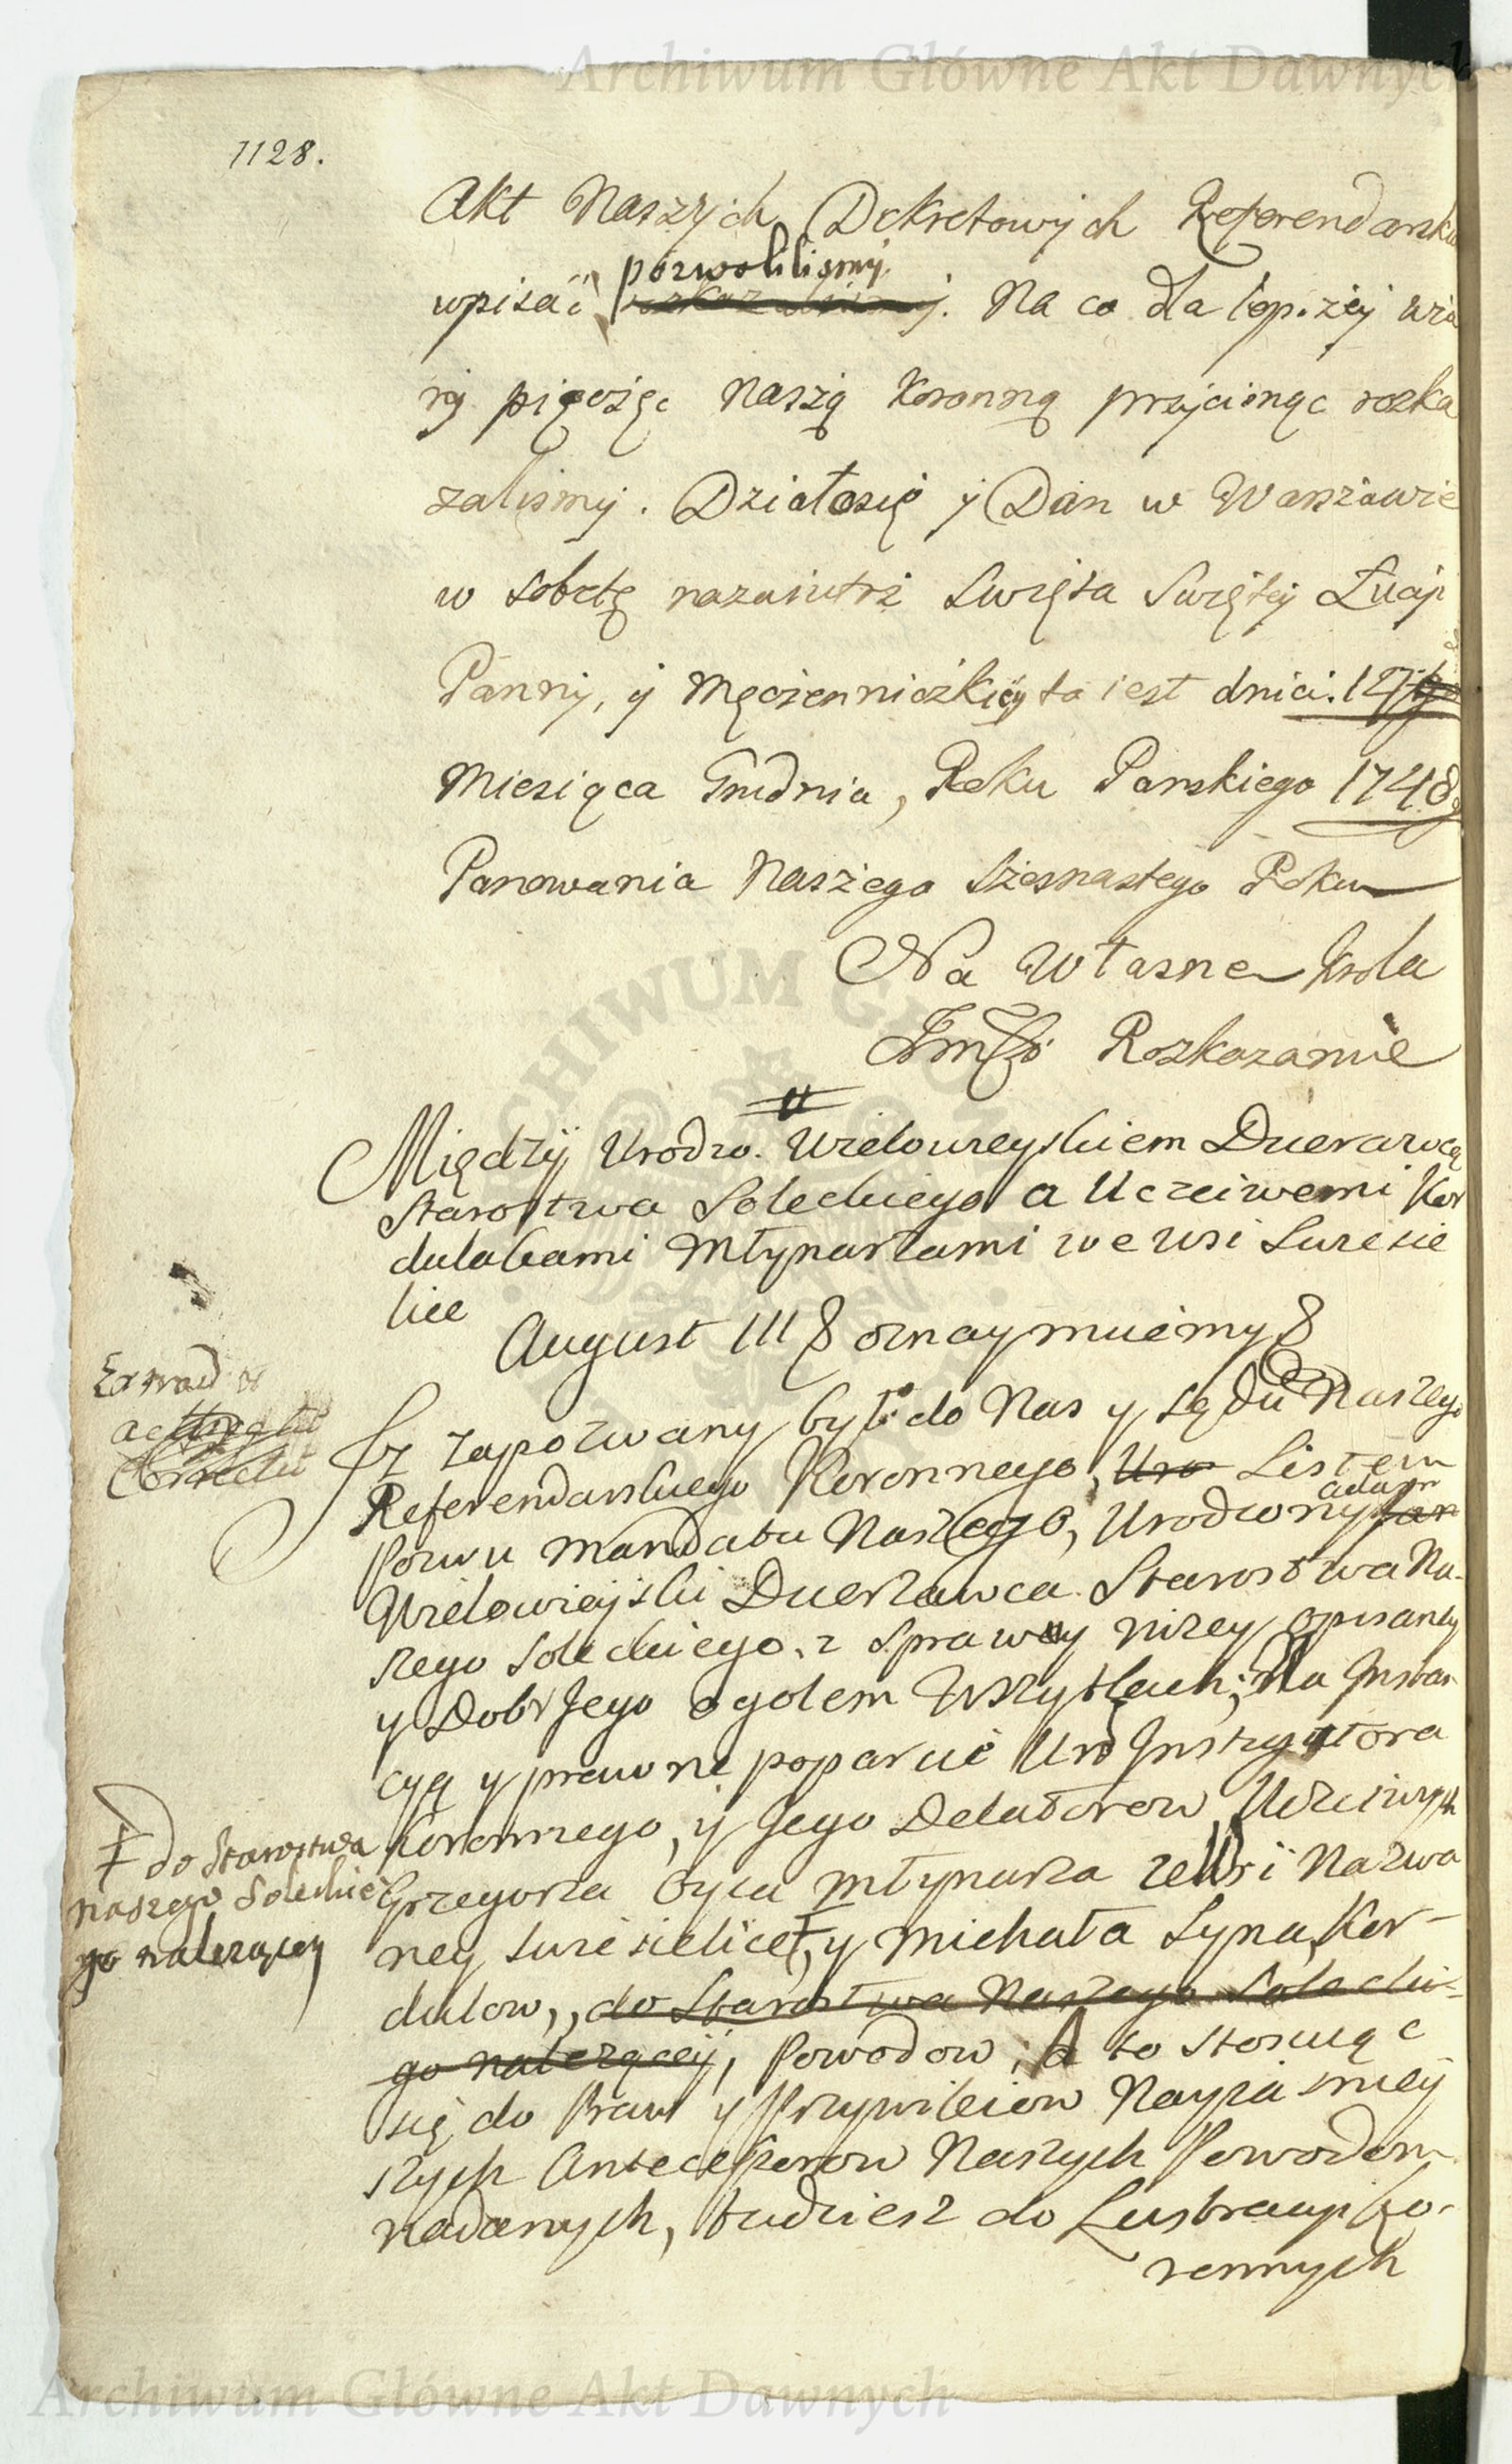 Archiwum Główne Akt Dawnych
1128.
Akt Naszych Dekretowych Referendarski
pozwolilismy
wpisać. Na co dla lepszey wia
ry pięczęc Naszą Koronną przycisnąc rozka
zalismy. Działosię y Dan w Warszawie
w Sobotę nazaiutrz Swięta Swiętey Łucyi
Panny, y Męczenniczkiey to iest dnia
Miesiąca Grudnia, Roku Panskiego 1748
Panowania Naszego Szesnastego Roku
Na Własne Krola
Rozkazanie
Między Urodzo. Wielowieyskiem Dzierzawcą
Starostwa Soleckiego a Uczciwemi Kor
dulabami Młynarzami we wsi Swiesie
lice
August III oznaymuiemy
Iz zapozwany był do Nas y Sądu Naszego
Referendarskiego Koronnego, Uro Listem
Pozwu Mandatu Naszego, Urodzony Adam
Wielowieyski Dzierzawca Starostwa Na-
szego Soleckiego, z Sprawy nizey opisaney
y Dobr Jego ogołem Wszytkich; Na Instan
cyą y prawne poparcie Uro Instygatora
Koronnego, y Jego Delatorow, Uczciwych
Grzegorza Oyca Młynarza ze Wsi Nazwa
ney Swiesielice ‡, y Michała Syna, Kor-
dulow, do Starostwa Naszego Soleckie-
go nalezącey, Powodow; A to stosuiąc
się do Praw y Przywileiow Nayiasniey
szych Antecessorow Naszych Powodom
nadanych, tudziesz do Lustracyi Ko-
ronnych
‡ do Starostwa
naszego Soleckie
go nalezącey
Archiwum Główne Akt Dawnych